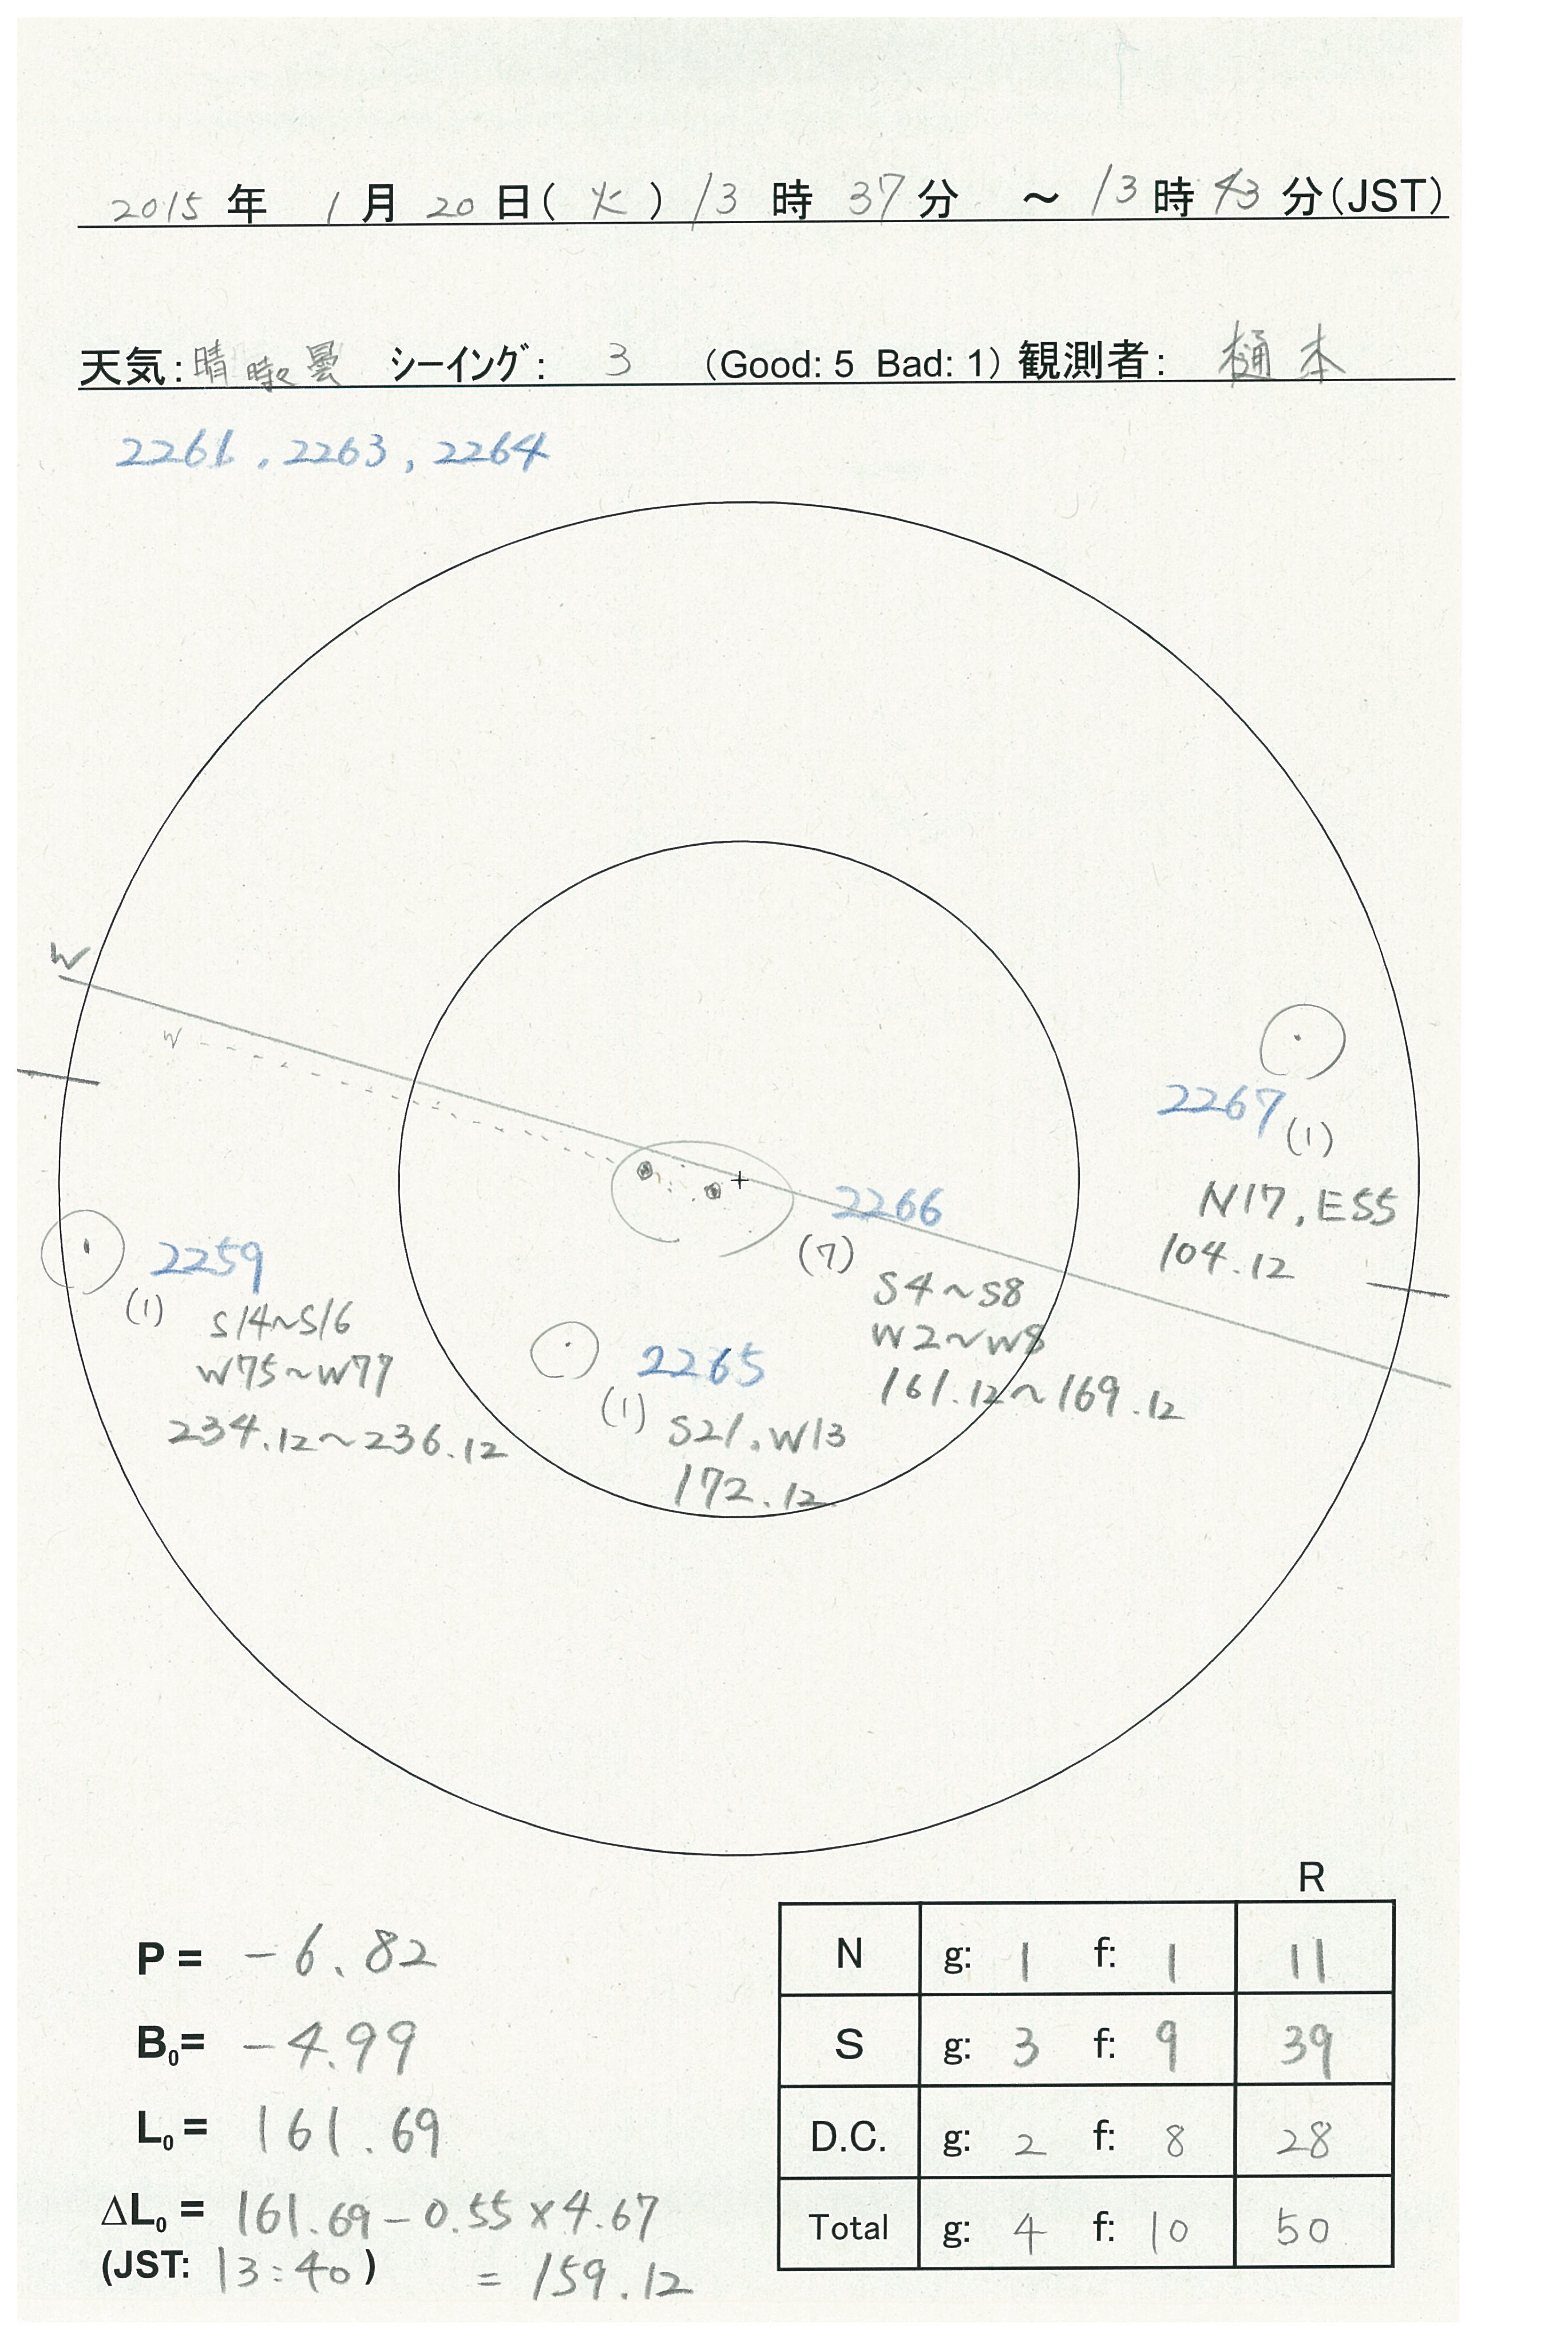 2015 年 1月 20 日( 火 ) 13 時 37分 ～ 13時 43分(JST)
天気: 晴時々曇 シーイング: 3 (Good: 5 Bad: 1) 観測者: 樋本
2261, 2263, 2264
W
W
2267
(1)
N17, E55
104.12
2266
(7)
S4~S8
W2~W8
161.12~169.12
2259
(1)
S14~S16
W75~W77
234.12~236.12
2265
(1)
S21, W13
172.12
R
N g: 1 f: 1 11
S g: 3 f: 9 39
D.C. g: 2 f: 8 28
Total g: 4 f: 10 50
P = -6.82
B₀= -4.99
L₀= 161.69
ΔL₀= 161.69-0.55×4.67
(JST: 13:40) = 159.12